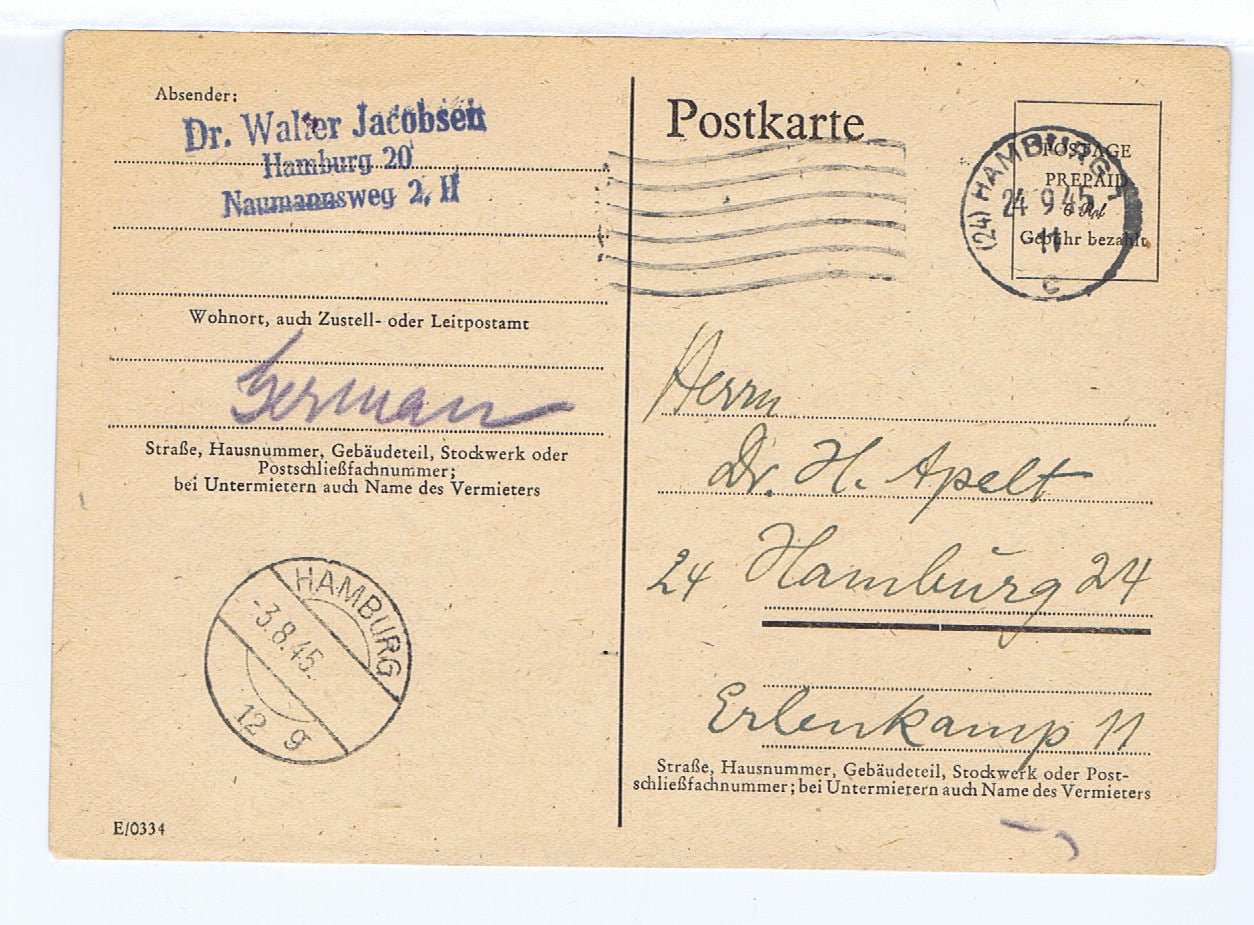 Absender:
Dr. Walter Jacobsen
Hamburg 20
Naumannsweg 2, II
Wohnort, auch Zustell- oder Leitpostamt
German
Straße, Hausnummer, Gebäudeteil, Stockwerk oder
Postschließfachnummer;
bei Untermietern auch Name des Vermieters
HAMBURG
-3.8.45.
12 g
E/0334
Postkarte
POSTAGE
PREPAID
6 Rpf
Gebühr bezahlt
(24) HAMBURG 1
24 9 45
11
c
Herrn
Dr. H. Apelt
24 Hamburg 24
Erlenkamp 11
Straße, Hausnummer, Gebäudeteil, Stockwerk oder Post-
schließfachnummer; bei Untermietern auch Name des Vermieters